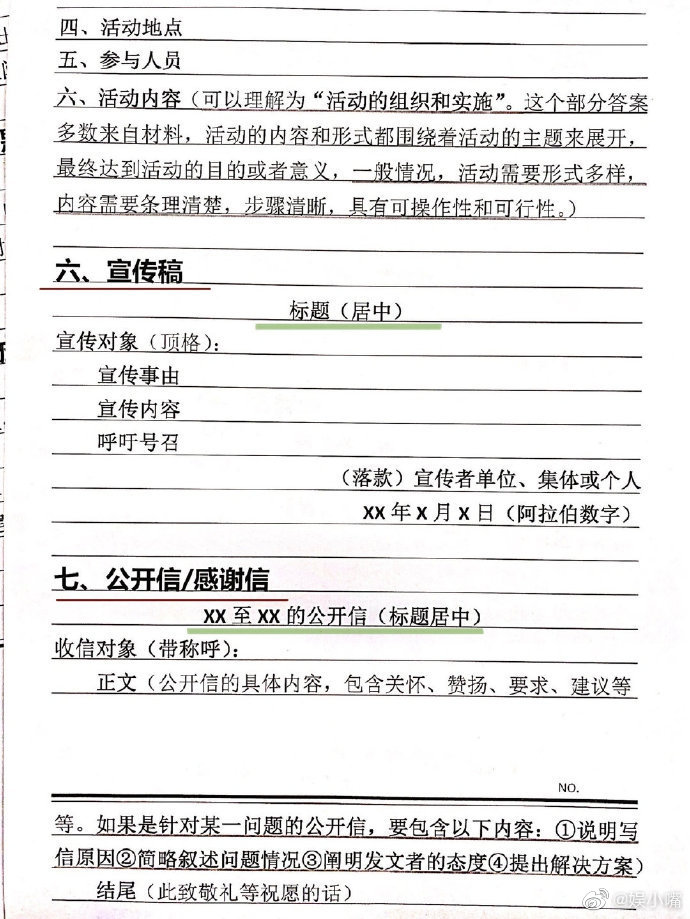 四、活动地点
五、参与人员
六、活动内容（可以理解为“活动的组织和实施”。这个部分答案
多数来自材料，活动的内容和形式都围绕着活动的主题来展开，
最终达到活动的目的或者意义，一般情况，活动需要形式多样，
内容需要条理清楚，步骤清晰，具有可操作性和可行性。）
六、宣传稿
标题（居中）
宣传对象（顶格）：
宣传事由
宣传内容
呼吁号召
（落款）宣传者单位、集体或个人
XX 年 X 月 X 日（阿拉伯数字）
七、公开信/感谢信
XX 至 XX 的公开信（标题居中）
收信对象（带称呼）：
正文（公开信的具体内容，包含关怀、赞扬、要求、建议等
NO.
等。如果是针对某一问题的公开信，要包含以下内容：①说明写
信原因②简略叙述问题情况③阐明发文者的态度④提出解决方案）
结尾（此致敬礼等祝愿的话）
@娱小嘴